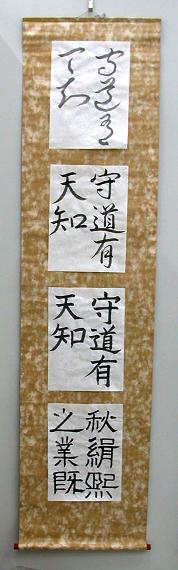 守道有
天知
守道有
天知
守道有
天知
秋絹熙
之業既